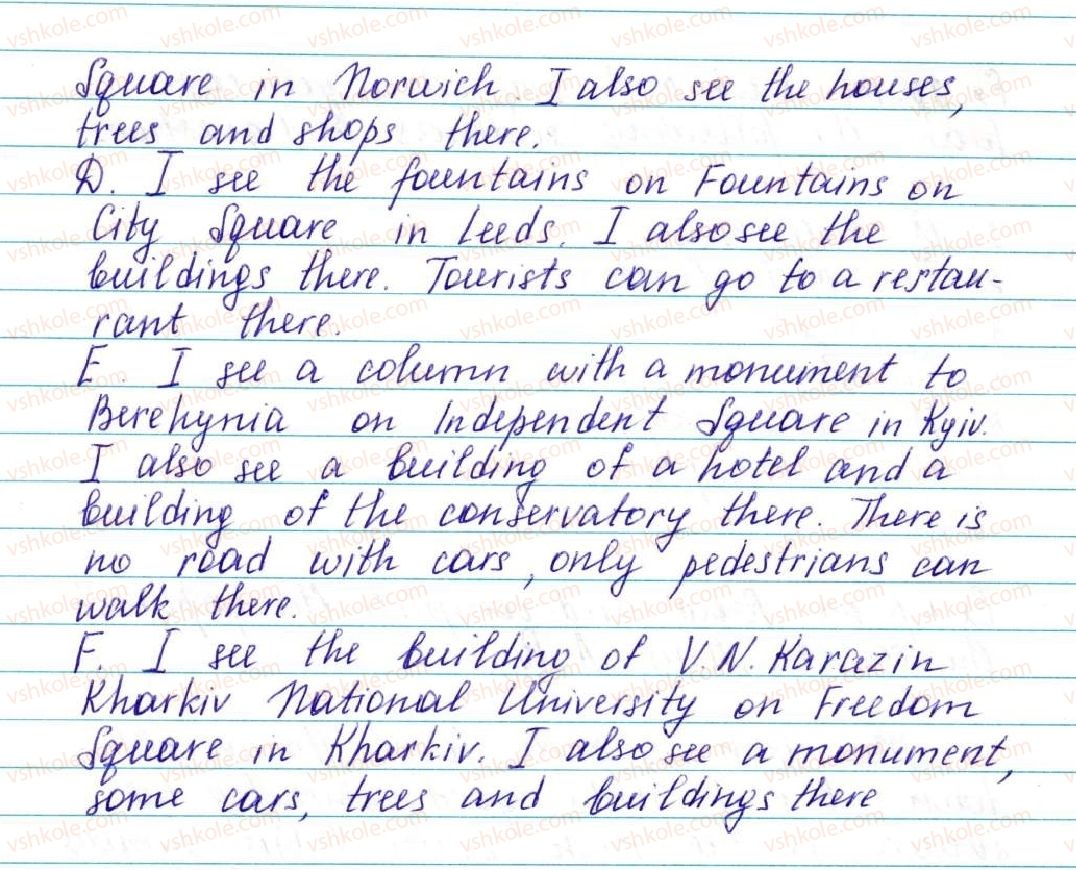 Square in Norwich. I also see the houses,
trees and shops there.
D. I see the fountains on Fountains on
City Square in Leeds. I also see the
buildings there. Tourists can go to a restau-
rant there.
E. I see a column with a monument to
Berehynia on Independent Square in Kyiv.
I also see a building of a hotel and a
building of the conservatory there. There is
no road with cars, only pedestrians can
walk there.
F. I see the building of V. N. Karazin
Kharkiv National University on Freedom
Square in Kharkiv. I also see a monument,
some cars, trees and buildings there